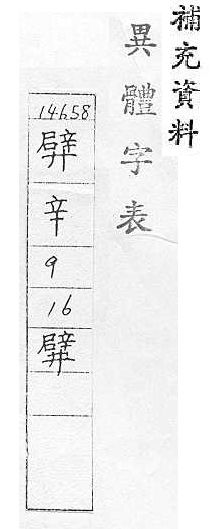 補充資料
異體字表
14658
辛
9
16